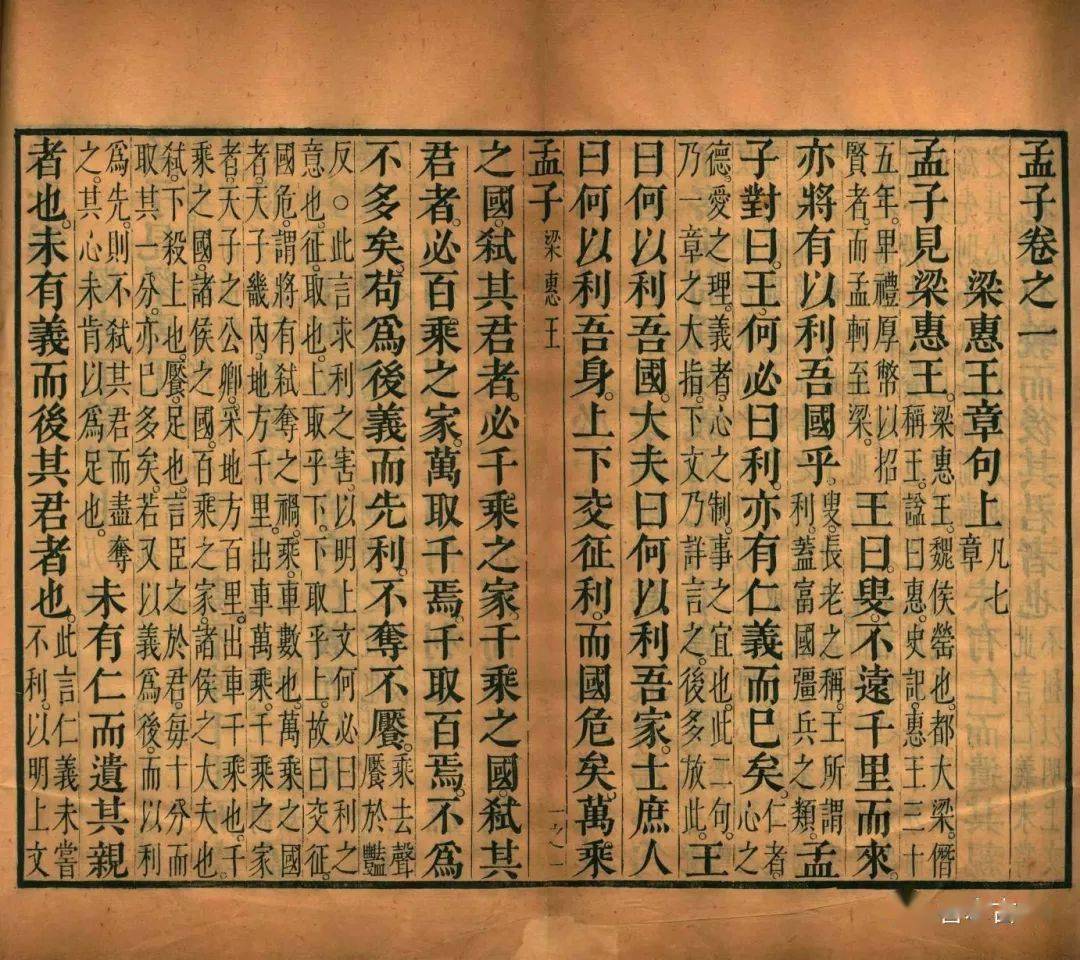 孟子卷之一
梁惠王章句上凡七章
孟子見梁惠王。梁惠王。魏侯罃也。都大梁。僭稱王。諡曰惠。史記。惠王三十
五年。卑禮厚幣以招賢者。而孟軻至梁。王曰。叟。不遠千里而來。
亦將有以利吾國乎。叟。長老之稱。王所謂利。蓋富國彊兵之類。孟
子對曰。王。何必曰利。亦有仁義而已矣。仁者心之
德。愛之理。義者。心之制。事之宜也。此二句。乃一章之大指。下文乃詳言之。後多放此。王
曰何以利吾國。大夫曰何以利吾家。士庶人
曰何以利吾身。上下交征利。而國危矣。萬乘
孟子 梁惠王 一
之國。弒其君者。必千乘之家。千乘之國弒其
君者。必百乘之家。萬取千焉。千取百焉。不爲
不多矣。苟爲後義而先利。不奪不饜。乘去聲。饜於豔
反。○此言求利之害。以明上文何必曰利之
意也。征。取也。上取乎下。下取乎上。故曰交征。
國危。謂將有弒奪之禍。乘。車數也。萬乘之國
者。天子畿內。地方千里。出車萬乘。千乘之家
者。天子之公卿。采地方百里。出車千乘也。千
乘之國。諸侯之國。百乘之家。諸侯之大夫也。
弒。下殺上也。饜。足也。言臣之於君。每十分而
取其一分。亦已多矣。若又以義爲後。而以利
爲先。則不弒其君而盡奪之。其心未肯以爲足也。未有仁而遺其親
者也。未有義而後其君者也。此言仁義未嘗不利。以明上文